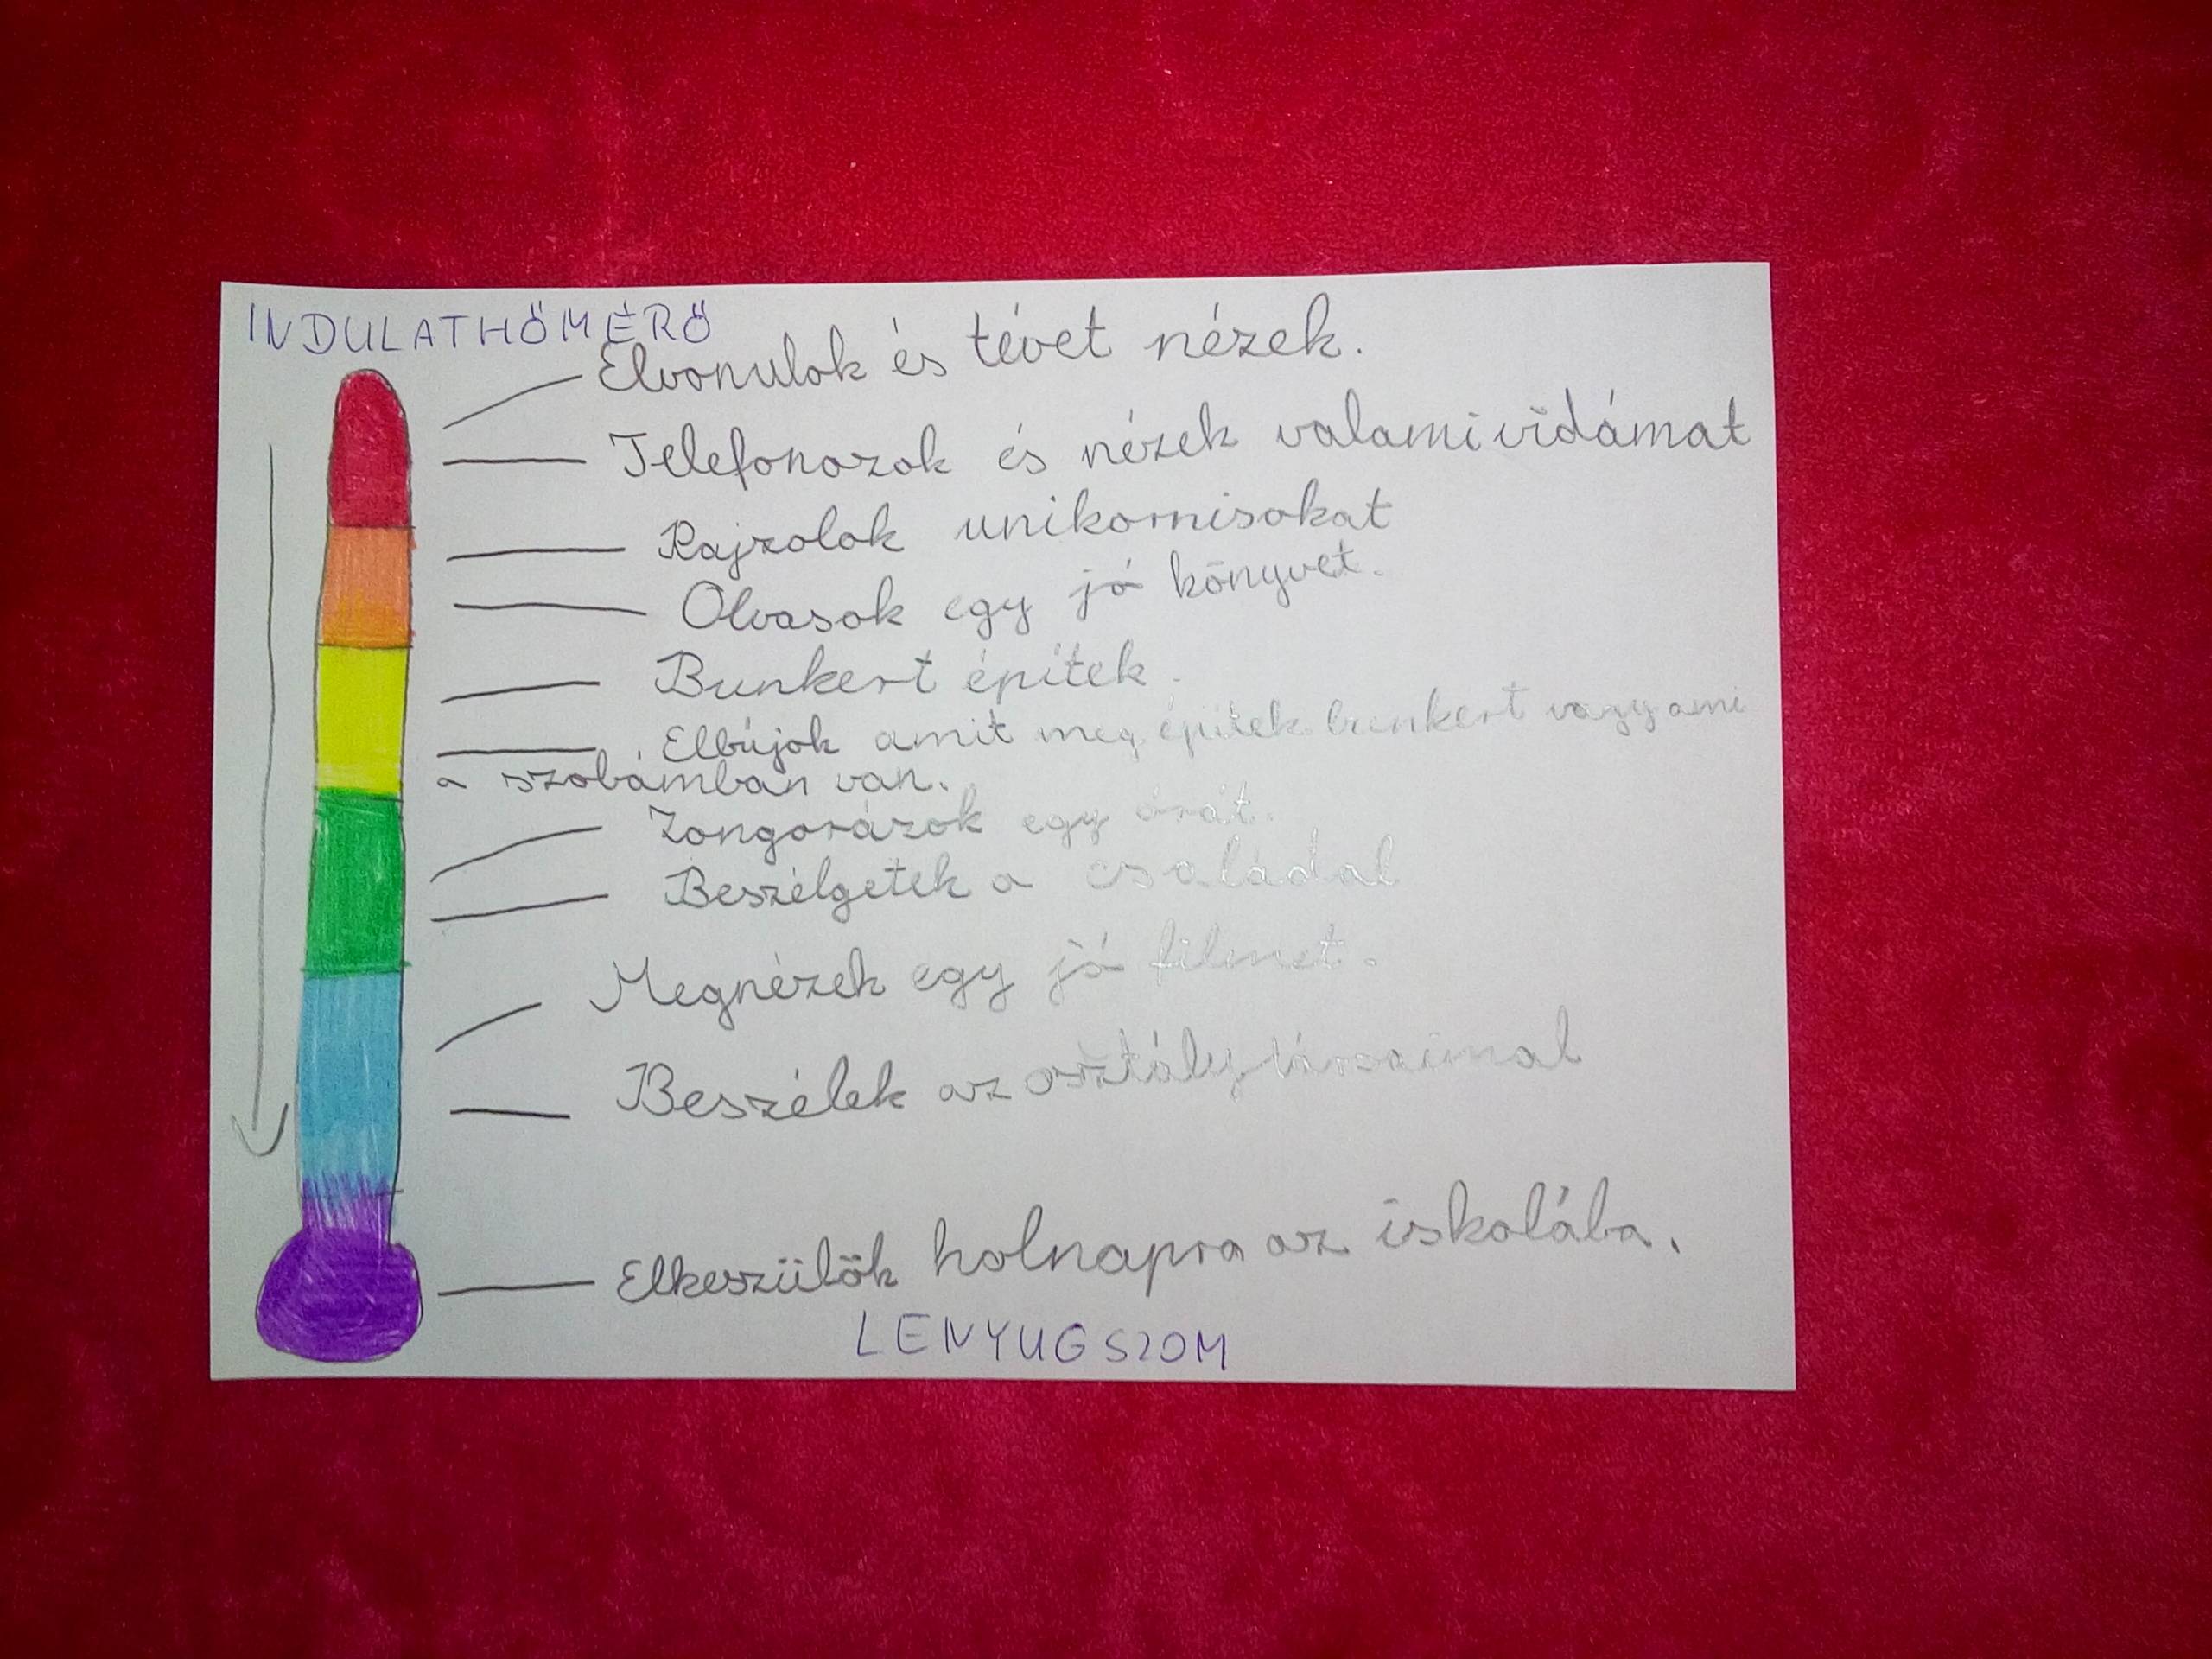 INDULATHŐMÉRŐ
Elvonulok és tévet nézek.
Telefonozok és nézek valami vidámat
Rajzolok unikornisokat
Olvasok egy jó könyvet.
Bunkert építek.
Elbújok amit meg építek bunkert vagy ami
a szobámban van.
Zongorázok egy órát.
Beszélgetek a családal
Megnézek egy jó filmet.
Beszélek az osztálytársaimal
Elkeszülök holnapra az iskolába.
LENYUGSZOM